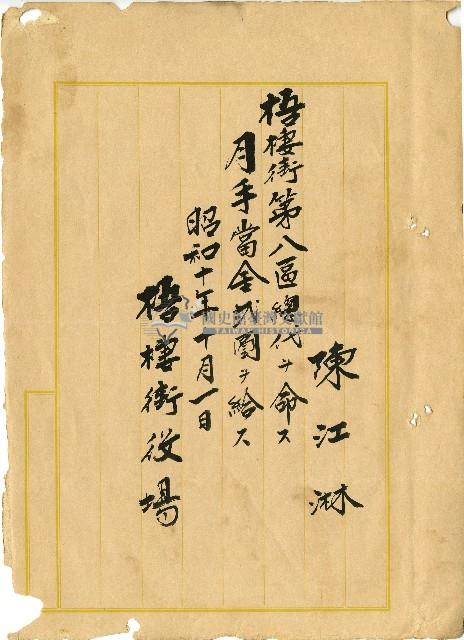 陳江淋
梧棲街第八區總代ヲ命ス
月手當金弍圓ヲ給ス
昭和十年十月一日
梧棲街役場
國史館臺灣文獻館
TAIWAN HISTORICA